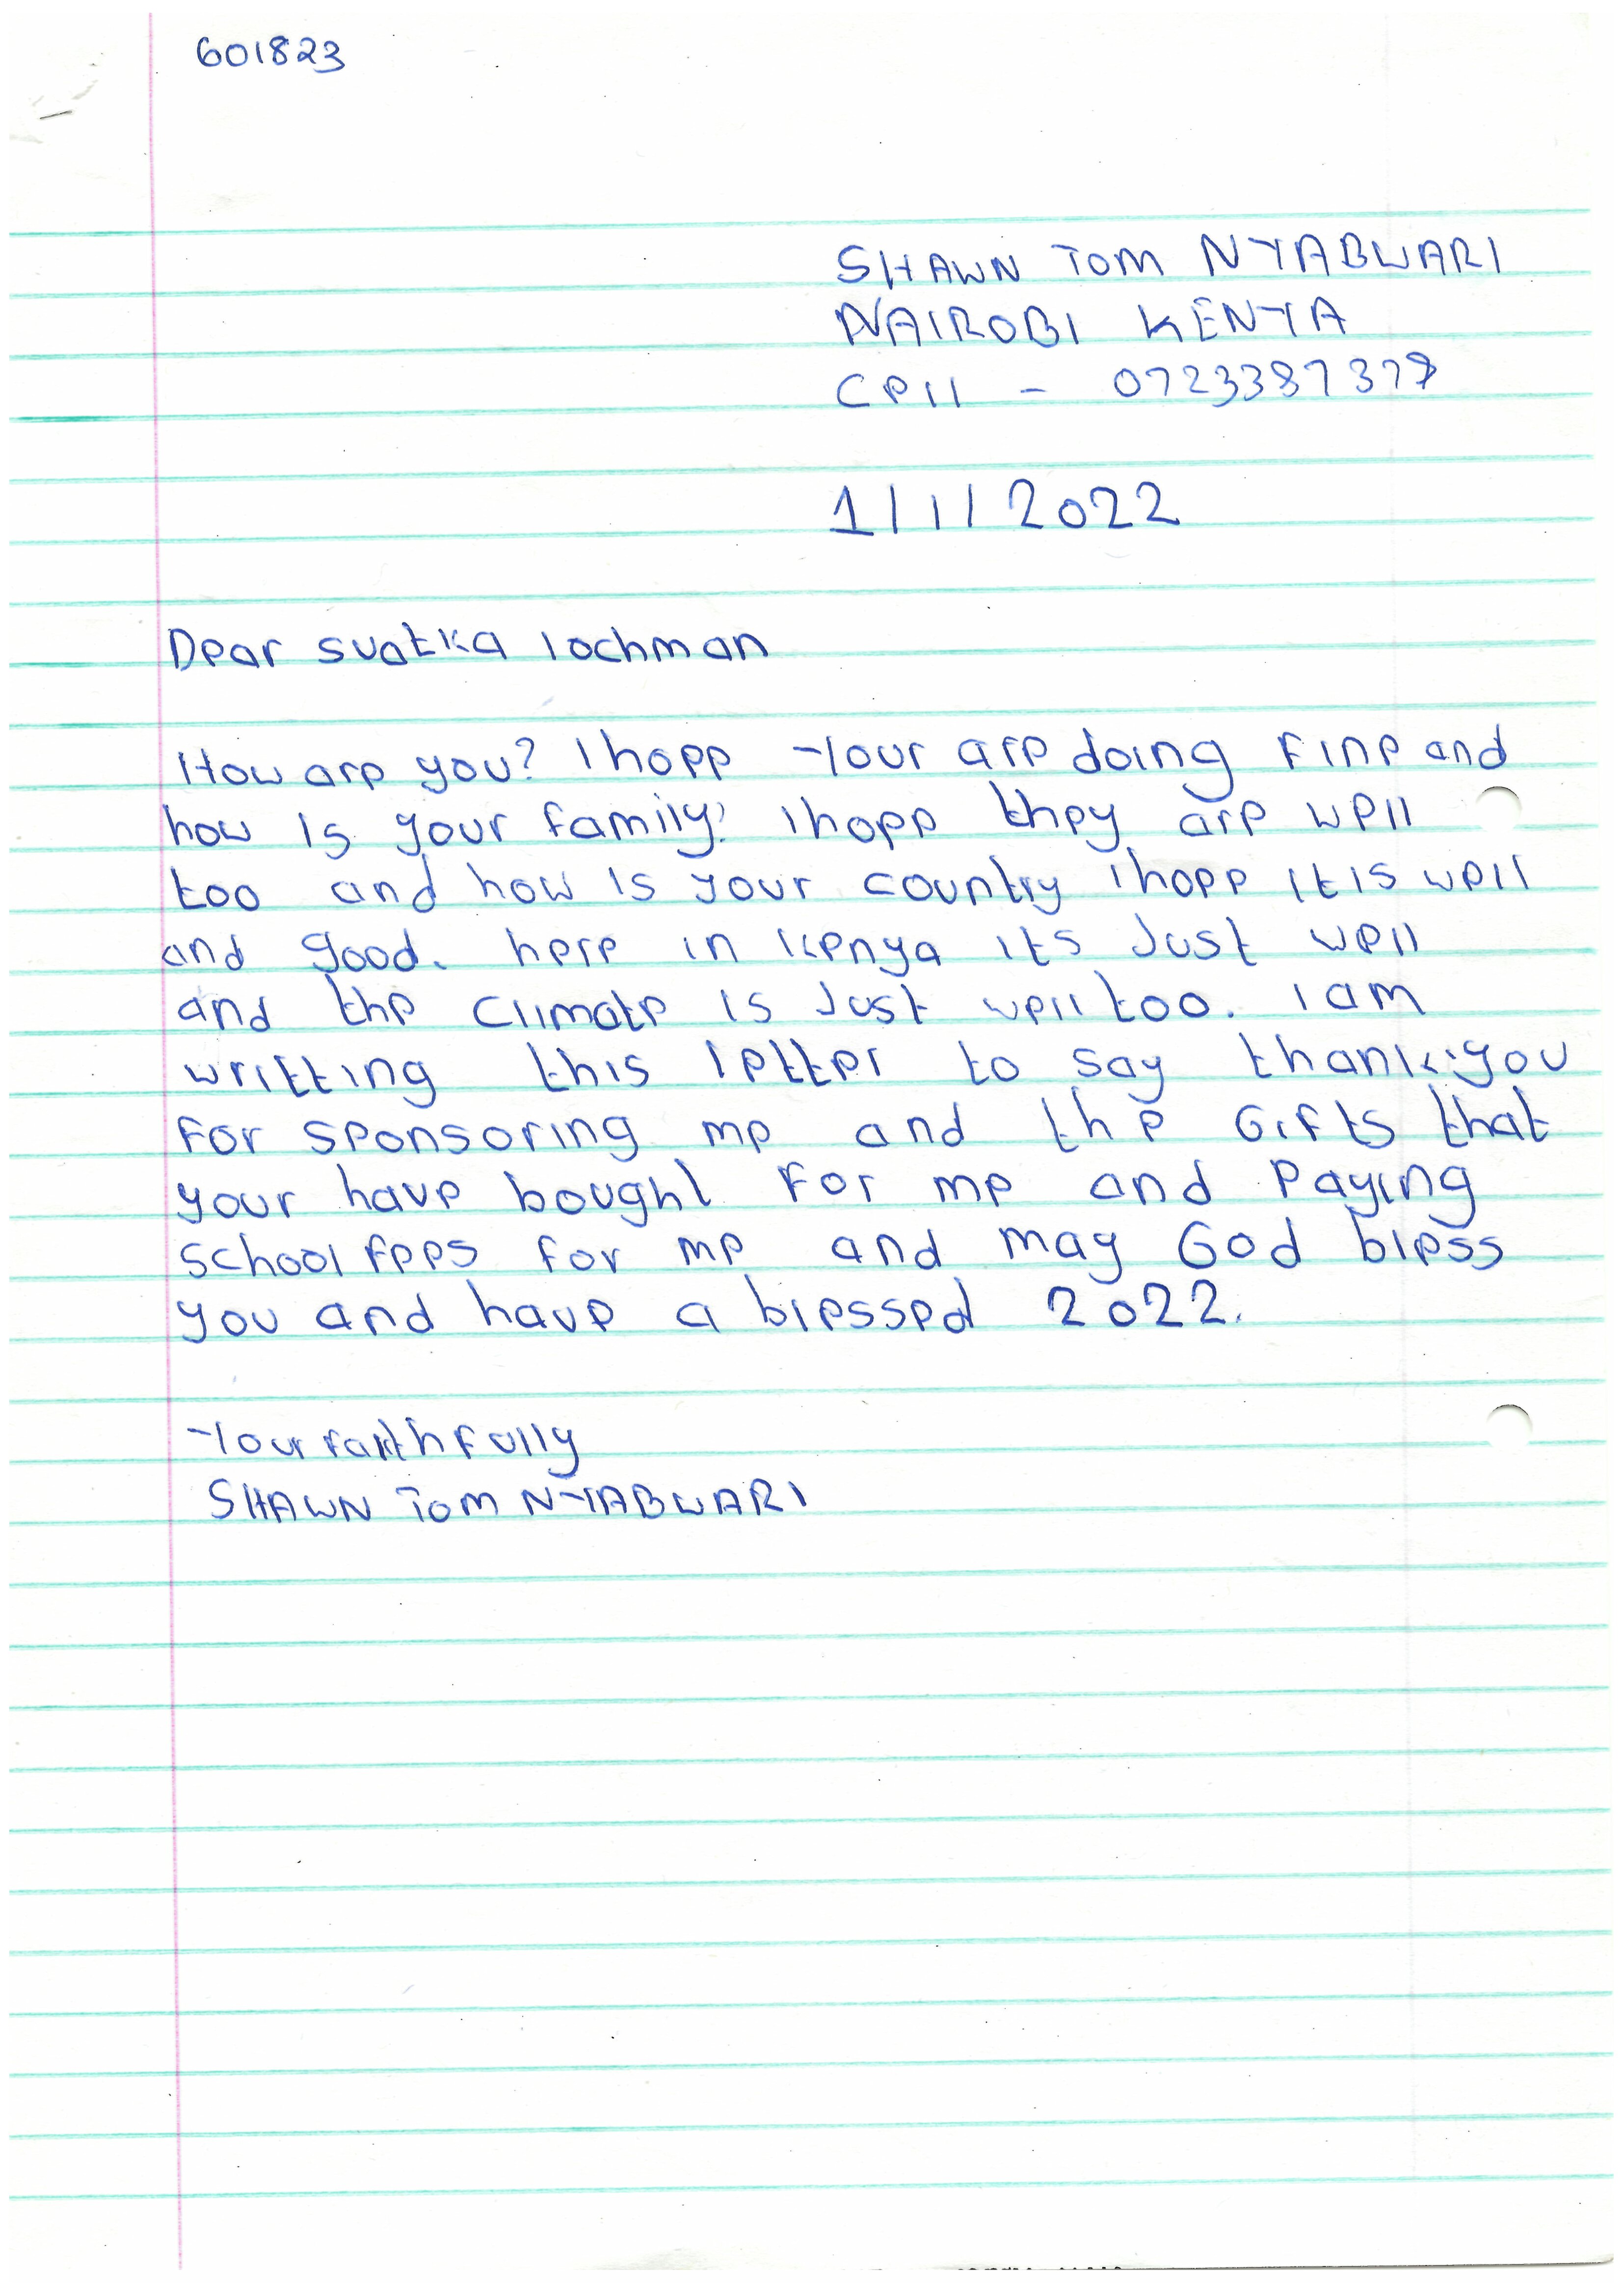 601823
SHAWN TOM NYABWARI
NAIROBI KENYA
Cell - 0723387378
1/1/2022
Dear svatka lochman
How are you? I hope Your are doing Fine and
how is your family? I hope they are well
too and how is your country I hope it is well
and good. here in Kenya its Just well
and the climate is Just well too. I am
writting this letter to say thank you
For sponsoring me and the Gifts that
your have bought For me and Paying
school fees for me and may God bless
you and have a blessed 2022.
Your faithfully
SHAWN TOM NYABWARI